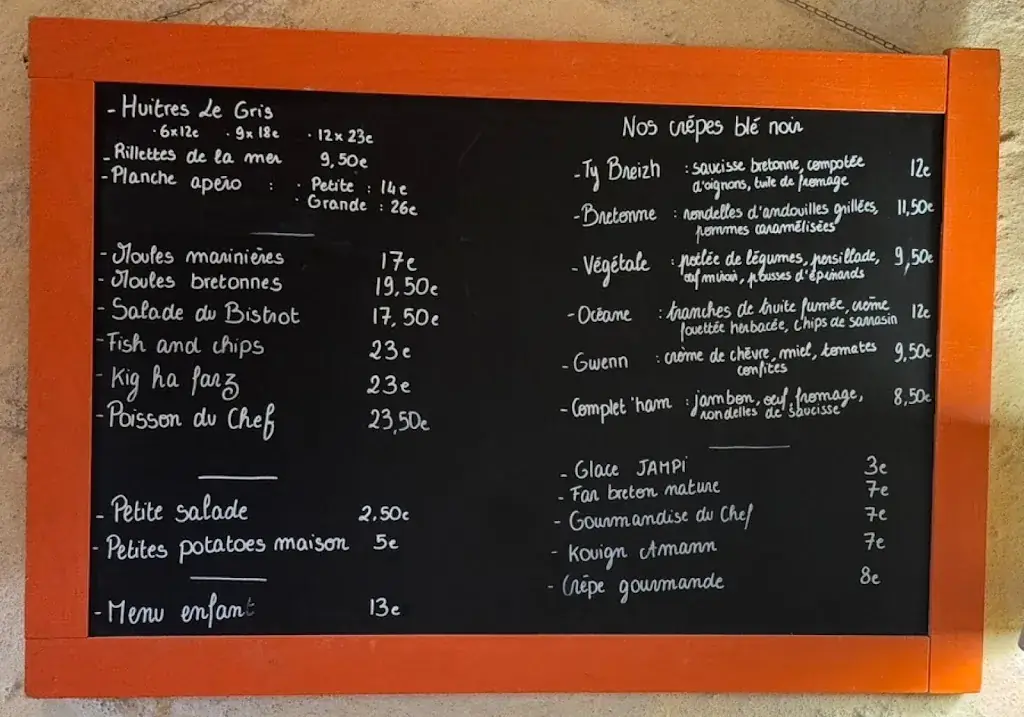 - Huitres Le Gris
· 6x12€ · 9x18€ · 12x23€
- Rillettes de la mer 9,50€
- Planche apéro : · Petite : 14€
· Grande : 26€
- Moules marinières 17€
- Moules bretonnes 19,50€
- Salade du Bistrot 17,50€
- Fish and chips 23€
- Kig ha farz 23€
- Poisson du Chef 23,50€
- Petite salade 2,50€
- Petites potatoes maison 5€
- Menu enfant 13€
Nos crêpes blé noir
- Ty Breizh : saucisse bretonne, compotée 12€
d'oignons, tuile de fromage
- Bretonne : rondelles d'andouilles grillées, 11,50€
pommes caramélisées
- Végétale : poêlée de légumes, persillade, 9,50€
œuf miroir, pousses d'épinards
- Océane : tranches de truite fumée, crème 12€
fouettée herbacée, chips de sarrasin
- Gwenn : crème de chèvre, miel, tomates 9,50€
confites
- Complet'ham : jambon, œuf, fromage, 8,50€
rondelles de saucisse
- Glace JAMPI 3€
- Far breton nature 7€
- Gourmandise du Chef 7€
- Kouign Amann 7€
- Crêpe gourmande 8€